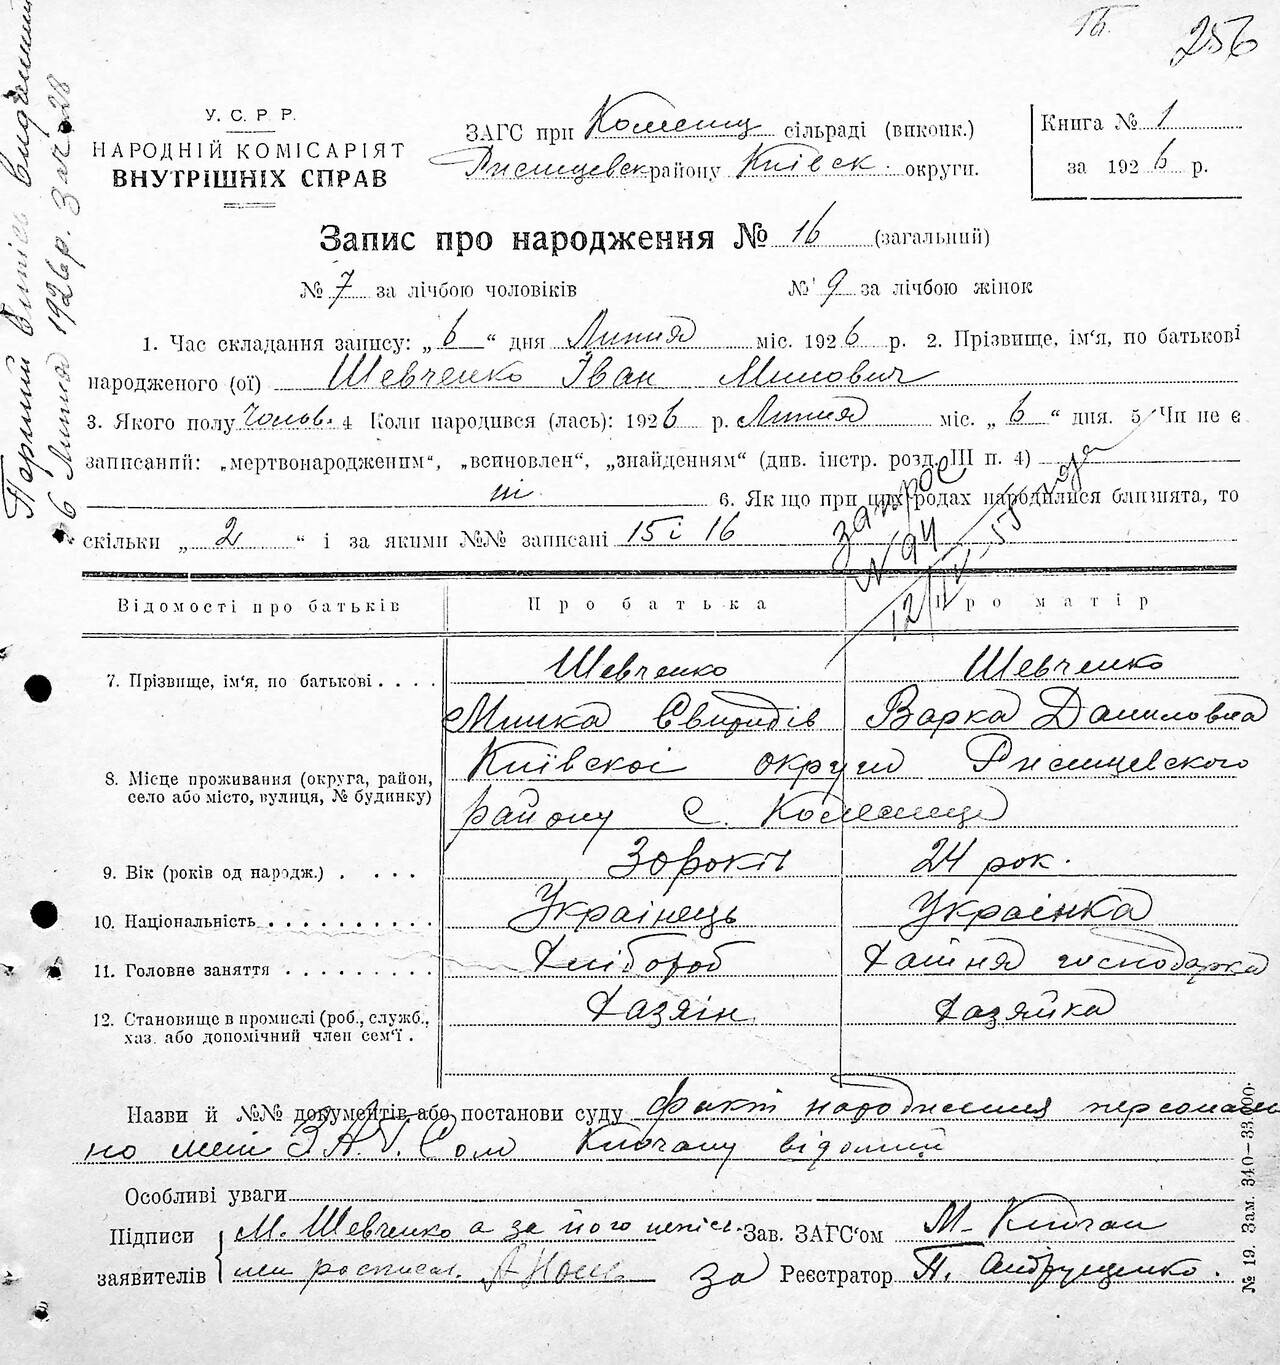 256
Парний Витись
6 Липня 1926р. За № 28
У. С. Р. Р.
НАРОДНІЙ КОМІСАРІЯТ
ВНУТРІШНІХ СПРАВ
ЗАГС при сільраді (виконк.)
району Київск. округи.
Книга № 1
за 1926 р.
Запис про народження № 16 (загальний)
№ 7 за лічбою чоловіків № 9 за лічбою жінок
1. Час складання запису: „6“ дня Липня міс. 1926 р. 2. Прізвище, ім‘я, по батькові
народженого (ої) Шевченко Іван Минович
3. Якого полу Чолов. 4 Коли народився (лась): 1926 р. Липня міс. „6“ дня. 5 Чи не є
записаний: „мертвонародженим“, „всиновлен“, „знайденням“ (див. інстр. розд. III п. 4)
ні 6. Як що при цих родах народилися близнята, то
скільки „2“ і за якими №№ записані 15 і 16
запрос
№ 94
12/IV-55 года
Відомості про батьків Про батька Про матір
7. Прізвище, ім‘я, по батькові . . . . Шевченко Шевченко
Минка Свиридів Варка Даниловна
8. Місце проживання (округа, район, село або місто, вулиця, № будинку) Київскоі округи
району с.
9. Вік (років од народж.) . . . . . 30 років 24 рок.
10. Національність . . . . . . . . . . Українець Украінка
11. Головне заняття . . . . . . . . . Хлібороб Хатня господарка
12. Становище в промислі (роб., служб., хаз. або допомічний член сем‘ї . Хазяін Хазяйка
Назви й №№ документів або постанови суду факт народження персональ
но мені З.А.Г.Сом Ключану відомий
Особливі уваги
Підписи заявителів М. Шевченко а за його непісь-
мен росписал.
Зав. ЗАГС‘ом М. Ключан
за Реєстратор П. Андрущенко.
№ 19. Зам. 340—33.000.